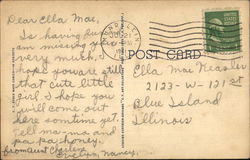 Dear Ella Mae,
Is having fun
am missing you
very much. I
hope you are still
that cute little
girl. I hope you
will come out
here sometime yet,
tell ma-ma and
pa pa honey.
from aunt Charley
Evelyn, Nancy.
POST CARD
Ella Mae Keasler
2123-W-121 st
Blue Island
Illinois